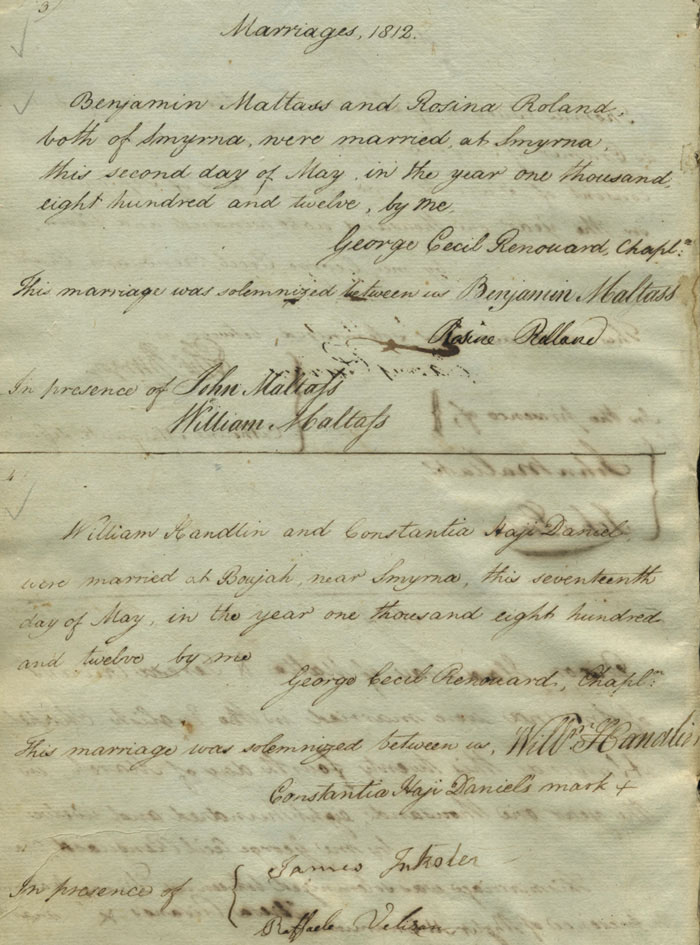 3
Marriages, 1812.
Benjamin Maltass and Rosina Roland,
both of Smyrna, were married, at Smyrna,
this second day of May, in the year one thousand
eight hundred and twelve, by me,
George Cecil Renouard, Chapln:
This marriage was solemnized between us Benjamin Maltass
Rosine Rolland
In presence of John Maltass
William Maltass
4
William Handlin and Constantia Haji Daniel
were married at Boujah, near Smyrna, this seventeenth
day of May, in the year one thousand eight hundred
and twelve by me
George Cecil Renouard, Chapln:
This marriage was solemnized between us, Willm Handlin
Constantia Haji Daniel's mark +
In presence of James
Raffaele